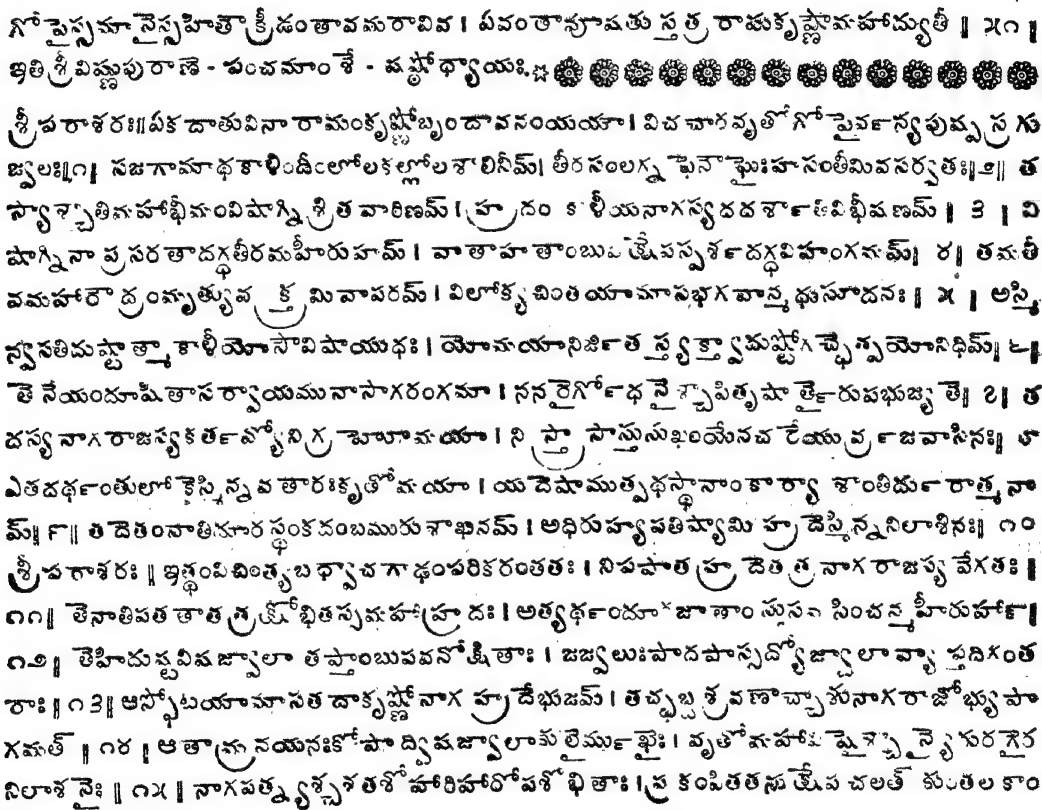 గోపైస్సమానైస్సహితౌ క్రీడంతావమరావివ । ఏవంతావూషతు స్తత్ర రామకృష్ణౌమహాద్యుతీ ॥ ౫౧ ॥
ఇతి శ్రీవిష్ణుపురాణే - పంచమాంశే - షష్ఠోధ్యాయః.
శ్రీపరాశరః॥ఏకదాతువినారామంకృష్ణోబృందావనంయయౌ । విచచారవృతోగోపైర్వన్యపుష్పస్రగు
జ్జ్వలః॥౧॥ సజగామాథకాళిందీంలోలకల్లోలశాలినీమ్। తీరసంలగ్న ఫేనౌఘైఃహసంతీమివసర్వతః॥౨॥ త
స్యాశ్చాతిమహాభీమంవిషాగ్నిశ్రితవారిణమ్ । హ్రదం కాళీయనాగస్యదదర్శాతివిభీషణమ్ ॥ ౩ ॥ వి
షాగ్నినా ప్రసరతాదగ్ధతీరమహీరుహమ్ । వాతాహతాంబువిక్షేపస్పర్శదగ్ధవిహంగమమ్॥ ౪॥ తమతీ
వమహారౌద్రంమృత్యువక్త్రమివాపరమ్ । విలోక్యచింతయామాసభగవాన్మధుసూదనః॥ ౫ ॥ అస్మి
న్వసతిదుష్టాత్మా కాళీయోసౌవిషాయుధః । యోమయానిర్జితస్త్యక్త్వాదుష్టోగచ్ఛేత్పయోనిధిమ్॥౬॥
తేనేయందూషితాసర్వాయమునాసాగరంగమా । ననరైర్గోధనైశ్చాపితృషార్తైరుపభుజ్యతే॥ ౭॥ త
దస్యనాగరాజస్యకర్తవ్యోనిగ్రహోమయా । నిస్త్రాసాస్తుసుఖంయేనచరేయుర్వ్రజవాసినః॥ ౮
ఏతదర్థంతులోకేస్మిన్నవతారఃకృతోమయా । యదేషాముత్పథస్థానాంకార్యా శాంతిర్దురాత్మనా
మ్॥౯॥ తదేతంనాతిదూరస్థంకదంబమురుశాఖినమ్ । అధిరుహ్యపతిష్యామి హ్రదేస్మిన్ననిలాశినః॥ ౧౦
శ్రీపరాశరః ॥ ఇత్థంవిచింత్యబధ్వాచగాఢంపరికరంతతః । నిపపాతహ్రదేతత్ర నాగరాజస్య వేగతః॥
౧౧॥ తేనాతిపతతాతత్రక్షోభితస్సమహాహ్రదః । అత్యర్థందూరజాతాం సింపచన్మహీరుహాన్॥
౧౨॥ తేహిదుష్టవిషజ్వాలా తప్తాంబుపవనోక్షితాః । జజ్వలుఃపాదపాస్సద్యోజ్వాలావ్యాప్తదిగంత
రాః॥౧౩॥ ఆస్ఫోటయామాసతదాకృష్ణోనాగహ్రదేభుజమ్ । తచ్ఛబ్దశ్రవణాచ్చాశునాగరాజోభ్యుపా
గమత్ ॥ ౧౪ ॥ ఆతామ్రనయనఃకోపాద్విషజ్వాలాకులైర్ముఖైః । వృతోమహావిషైశ్చాన్యైరురగైర
నిలాశనైః ॥ ౧౫ ॥ నాగపత్న్యశ్చశతశో హారిహారోపశోభితాః । ప్రకంపితతనుక్షేపచలత్ కుంతలకాం